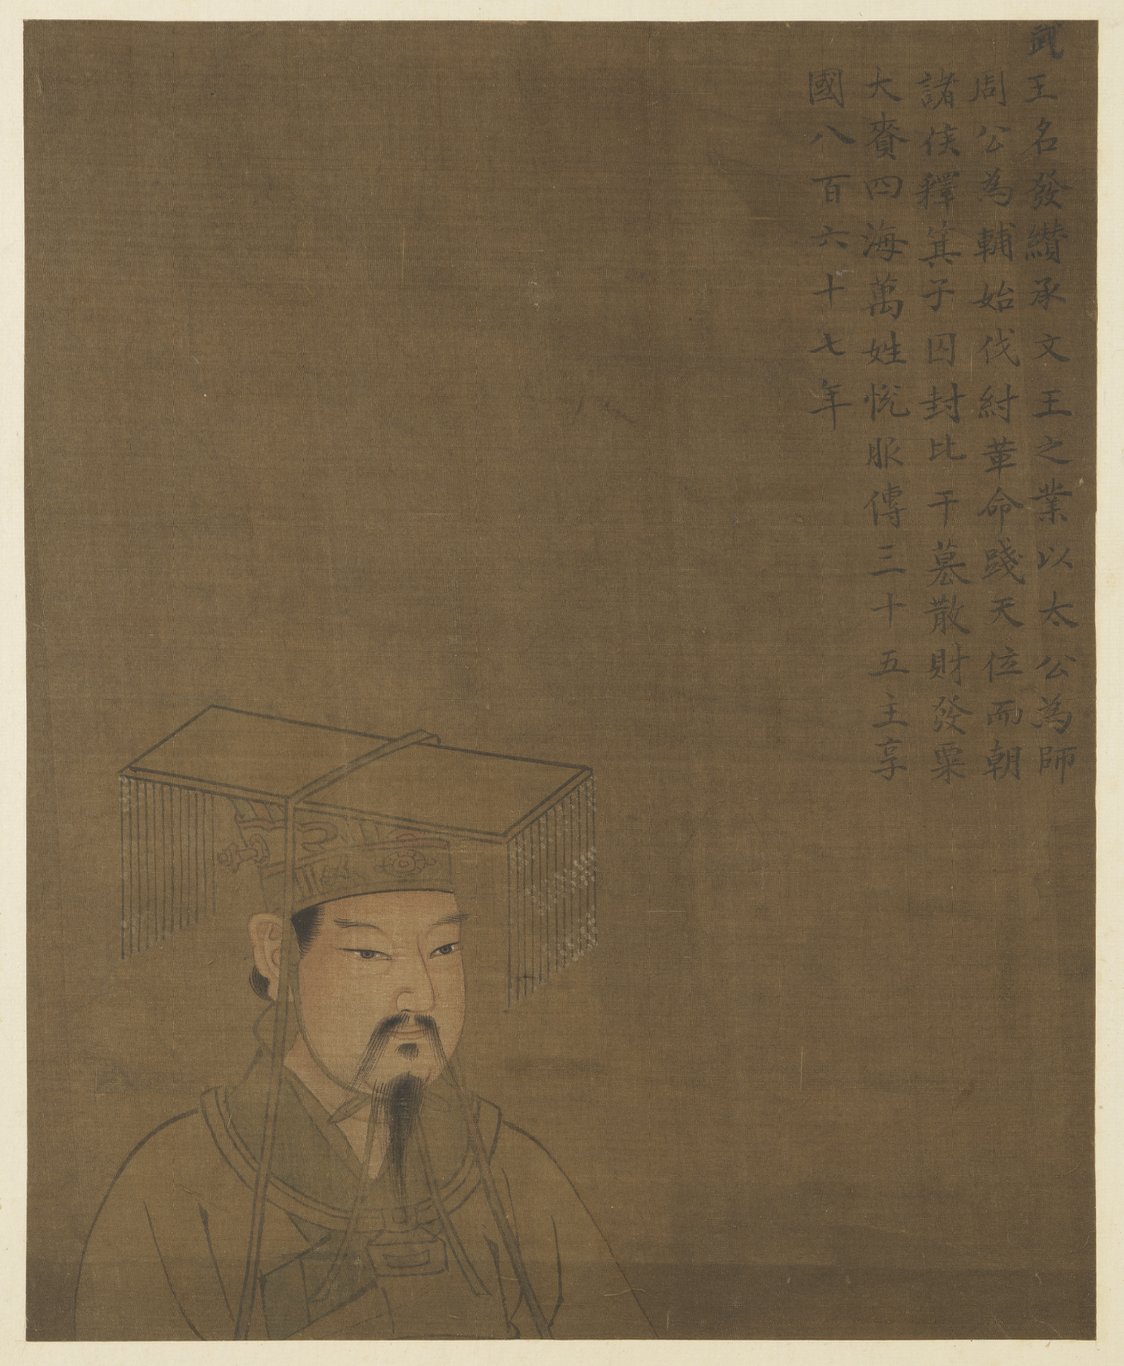 武王名發纘承文王之業以太公為師
周公為輔始伐紂革命踐天位而朝
諸侯釋箕子囚封比干墓散財發粟
大賚四海萬姓悅服傳三十五主享
國八百六十七年